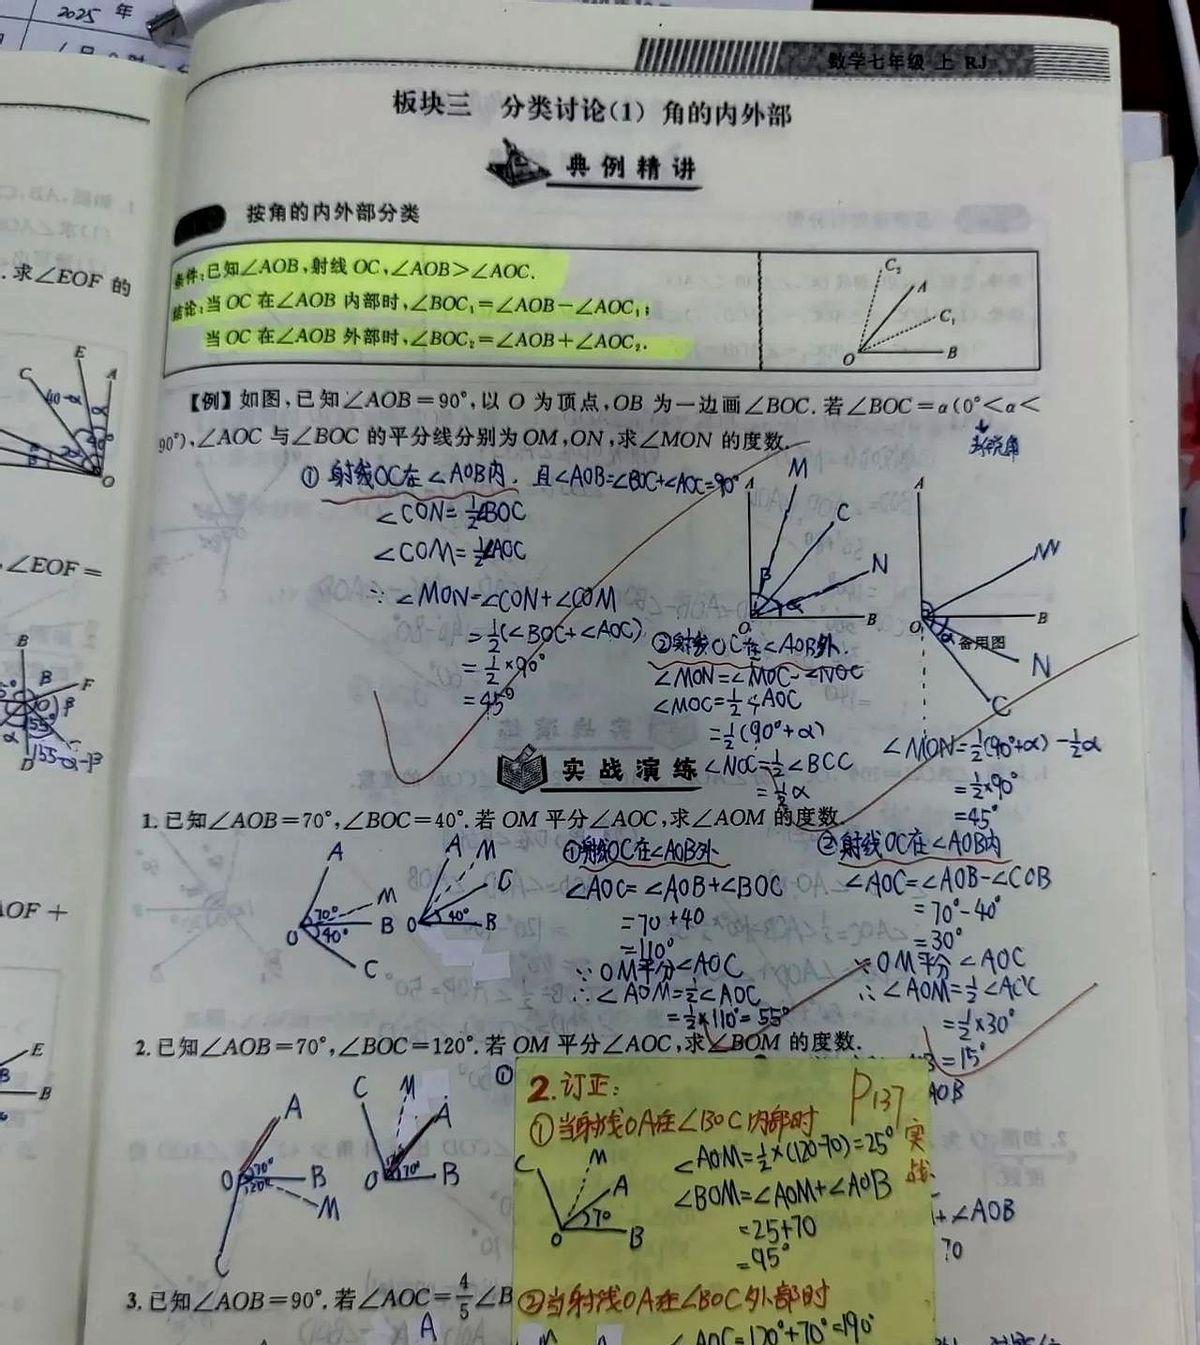 2025 年
数学七年级 上 RJ
板块三 分类讨论(1) 角的内外部
典例精讲
按角的内外部分类
条件:已知∠AOB,射线 OC,∠AOB>∠AOC.
结论:当 OC 在∠AOB 内部时,∠BOC₁=∠AOB-∠AOC₁;
当 OC 在∠AOB 外部时,∠BOC₂=∠AOB+∠AOC₂.
C₂ A C₁ O B
【例】如图,已知∠AOB=90°,以 O 为顶点,OB 为一边画∠BOC.若∠BOC=α(0°<α<
90°),∠AOC 与∠BOC 的平分线分别为 OM,ON,求∠MON 的度数.
① 射线OC在∠AOB内. 且∠AOB=∠BOC+∠AOC=90°
∠CON=½∠BOC
∠COM=½∠AOC
∴ ∠MON=∠CON+∠COM
=½(∠BOC+∠AOC)
=½×90°
=45°
A M C N B O
A M B O N C
备用图
②射线OC在∠AOB外.
∠MON=∠MOC-∠NOC
∠MOC=½∠AOC
=½(90°+α)
∠NOC=½∠BOC
=½α
∠MON=½(90°+α)-½α
=½×90°
=45°
实战演练
1.已知∠AOB=70°,∠BOC=40°.若 OM 平分∠AOC,求∠AOM 的度数.
A M B C O 70° 40°
A M C B O 40°
①射线OC在∠AOB外
∠AOC=∠AOB+∠BOC
=70+40
=110°
∵ OM平分∠AOC
∴∠AOM=½∠AOC
=½×110°=55°
②射线OC在∠AOB内
∠AOC=∠AOB-∠COB
=70°-40°
=30°
∵OM平分∠AOC
∴∠AOM=½∠AOC
=½×30°
=15°
2.已知∠AOB=70°,∠BOC=120°.若 OM 平分∠AOC,求∠BOM 的度数.
①
A O B M C 70° 120°
C M A O B 70°
AOB
+∠AOB
70
2.订正: P137 实战
①当射线OA在∠BOC内部时
C M A O B 70°
∠AOM=½×(120-70)=25°
∠BOM=∠AOM+∠AOB
=25+70
=95°
②当射线OA在∠BOC外部时
∠AOC=120°+70°=190°
3.已知∠AOB=90°.若∠AOC=4/5∠B
A
.求∠EOF 的
E C A O
.∠EOF=
B F
155-α-β
D
AOF+
E
B